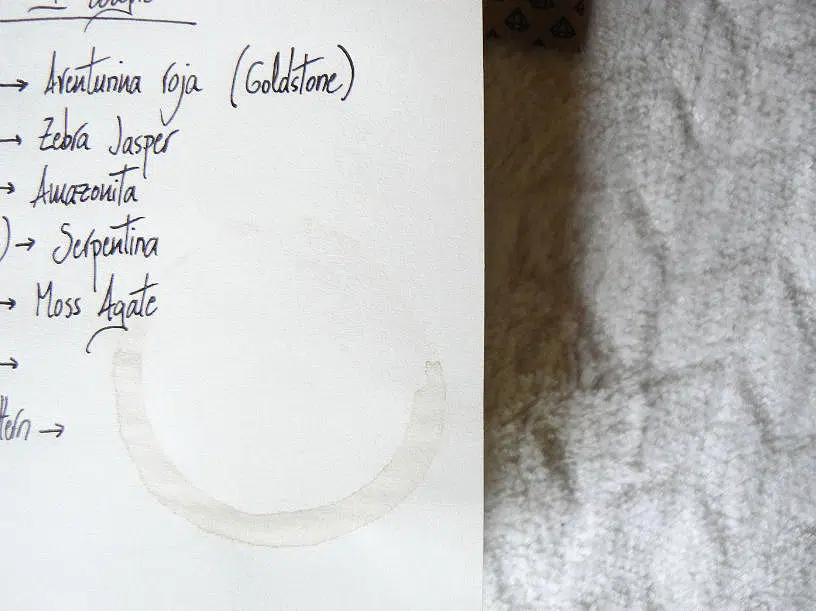 → Aventurina roja (Goldstone)
→ Zebra Jasper
→ Amazonita
) → Serpentina
→ Moss Agate
→
ttern →